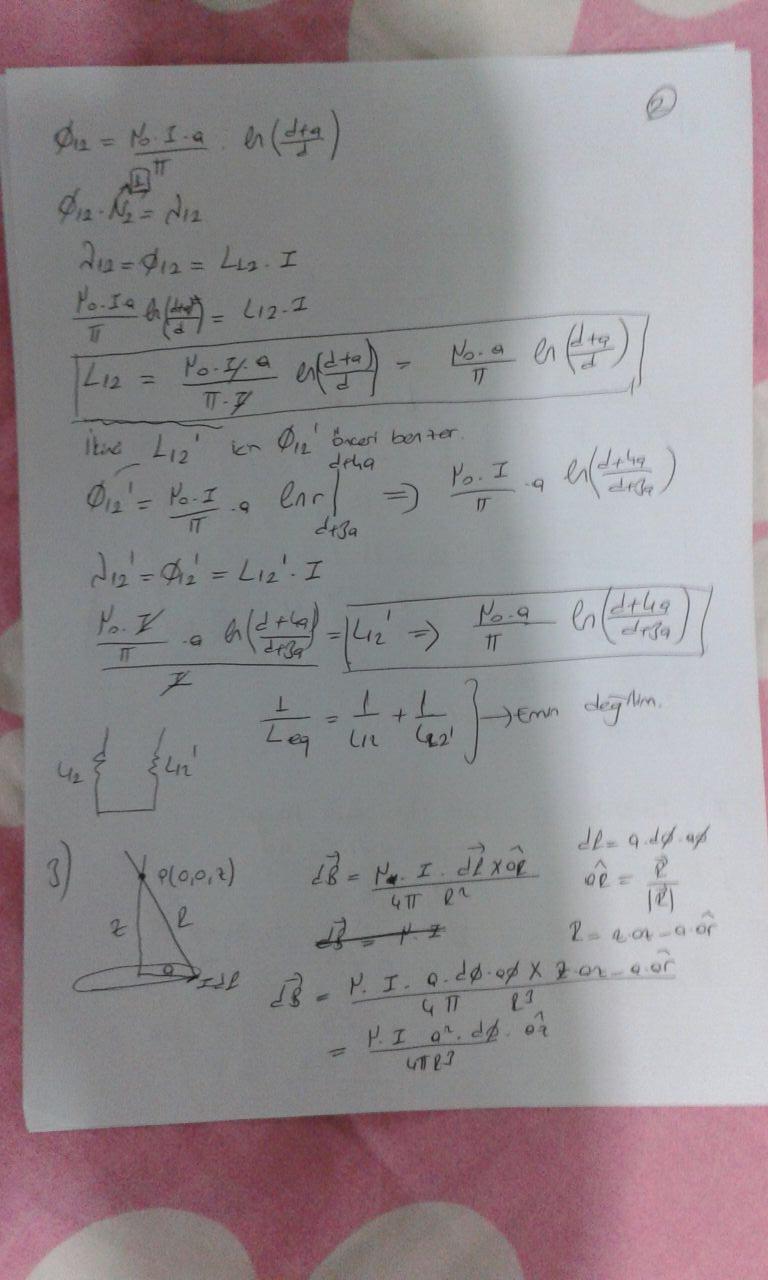 2
Φ12 = μ0·I·a/π · ln((d+a)/d)
Φ12·N2 = λ12
1
λ12 = Φ12 = L12·I
μ0·I·a/π ln((d+a)/d) = L12·I
L12 = μ0·I·a/π·I ln((d+a)/d) = μ0·a/π ln((d+a)/d)
L12' icn Φ12' önceki benzer.
Φ12' = μ0·I/π · a lnr| d+4a d+3a => μ0·I/π · a ln((d+4a)/(d+3a))
λ12' = Φ12' = L12'·I
μ0·I/π · a ln((d+4a)/(d+3a)) / I = L12' => μ0·a/π ln((d+4a)/(d+3a))
1/Leq = 1/L12 + 1/L12' } → Emin değilim.
L12 L12'
3)
P(0,0,z)
z R
a Idl
dB = μ0·I·dl×âR / 4π R²
dl = a·dφ·aφ
âR = R/|R|
R = z·az - a·âr
dB = μ·I·a·dφ·aφ × z·az - a·âr / 4π R³
= μ·I a²·dφ·âz / 4πR³